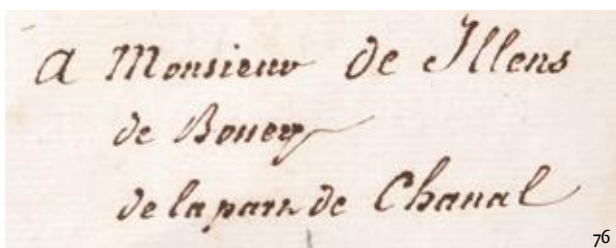 A Monsieur de Illens
de Bonery
de la part de Chanal
76